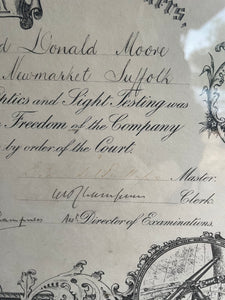 d Donald Moore
Newmarket Suffolk
ptics and Sight Testing was
Freedom of the Company
by order of the Court.
Master.
Clerk
Director of Examinations.